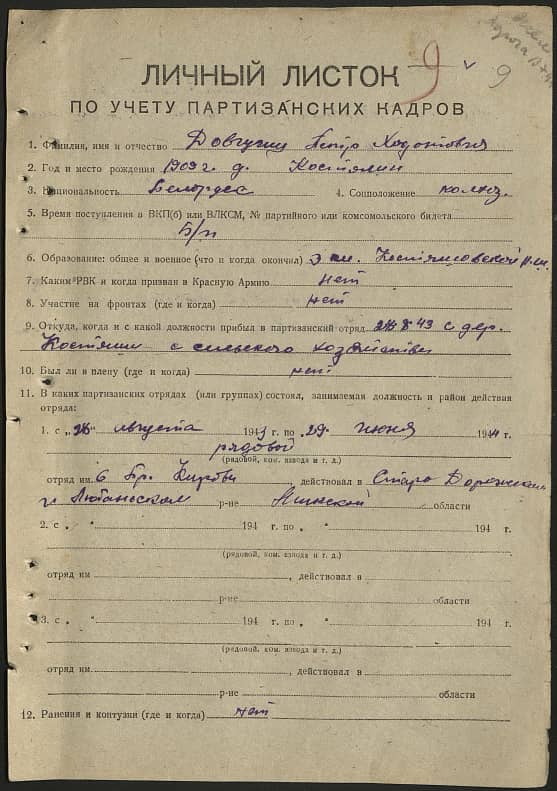 9 v 9
ЛИЧНЫЙ ЛИСТОК
ПО УЧЕТУ ПАРТИЗАНСКИХ КАДРОВ
1. Фамилия, имя и отчество Петр
2. Год и место рождения 1909 г. д. Костяшин
3. Национальность Белорус 4. Соцположение колхоз.
5. Время поступления в ВКП(б) или ВЛКСМ, № партийного или комсомольского билета
Б/п
6. Образование: общее и военное (что и когда окончил) 3 кл.
7. Каким РВК и когда призван в Красную Армию нет
8. Участие на фронтах (где и когда) нет
9. Откуда, когда и с какой должности прибыл в партизанский отряд 28 8 43 с дер.
Костяшин с сельского хозяйства
10. Был ли в плену (где и когда) нет
11. В каких партизанских отрядах (или группах) состоял, занимаемая должность и район действия
отряда:
1. с „28" августа 1943 г. по 29 июня 1944 г.
рядовой
(рядовой, ком. взвода и т. д.)
отряд им. 6 бр. Кирова действовал в Старо Дорожском
и Любаньском р-не Минской области
2. с „ " 194 г. по „ " 194 г.
(рядовой, ком. взвода и т. д.)
отряд им , действовал в
р-не области
3. с „ " 194 г. по „ " 194 г.
(рядовой, ком. взвода и т. д.)
отряд им. , действовал в
р-не области
12. Ранения и контузии (где и когда) нет